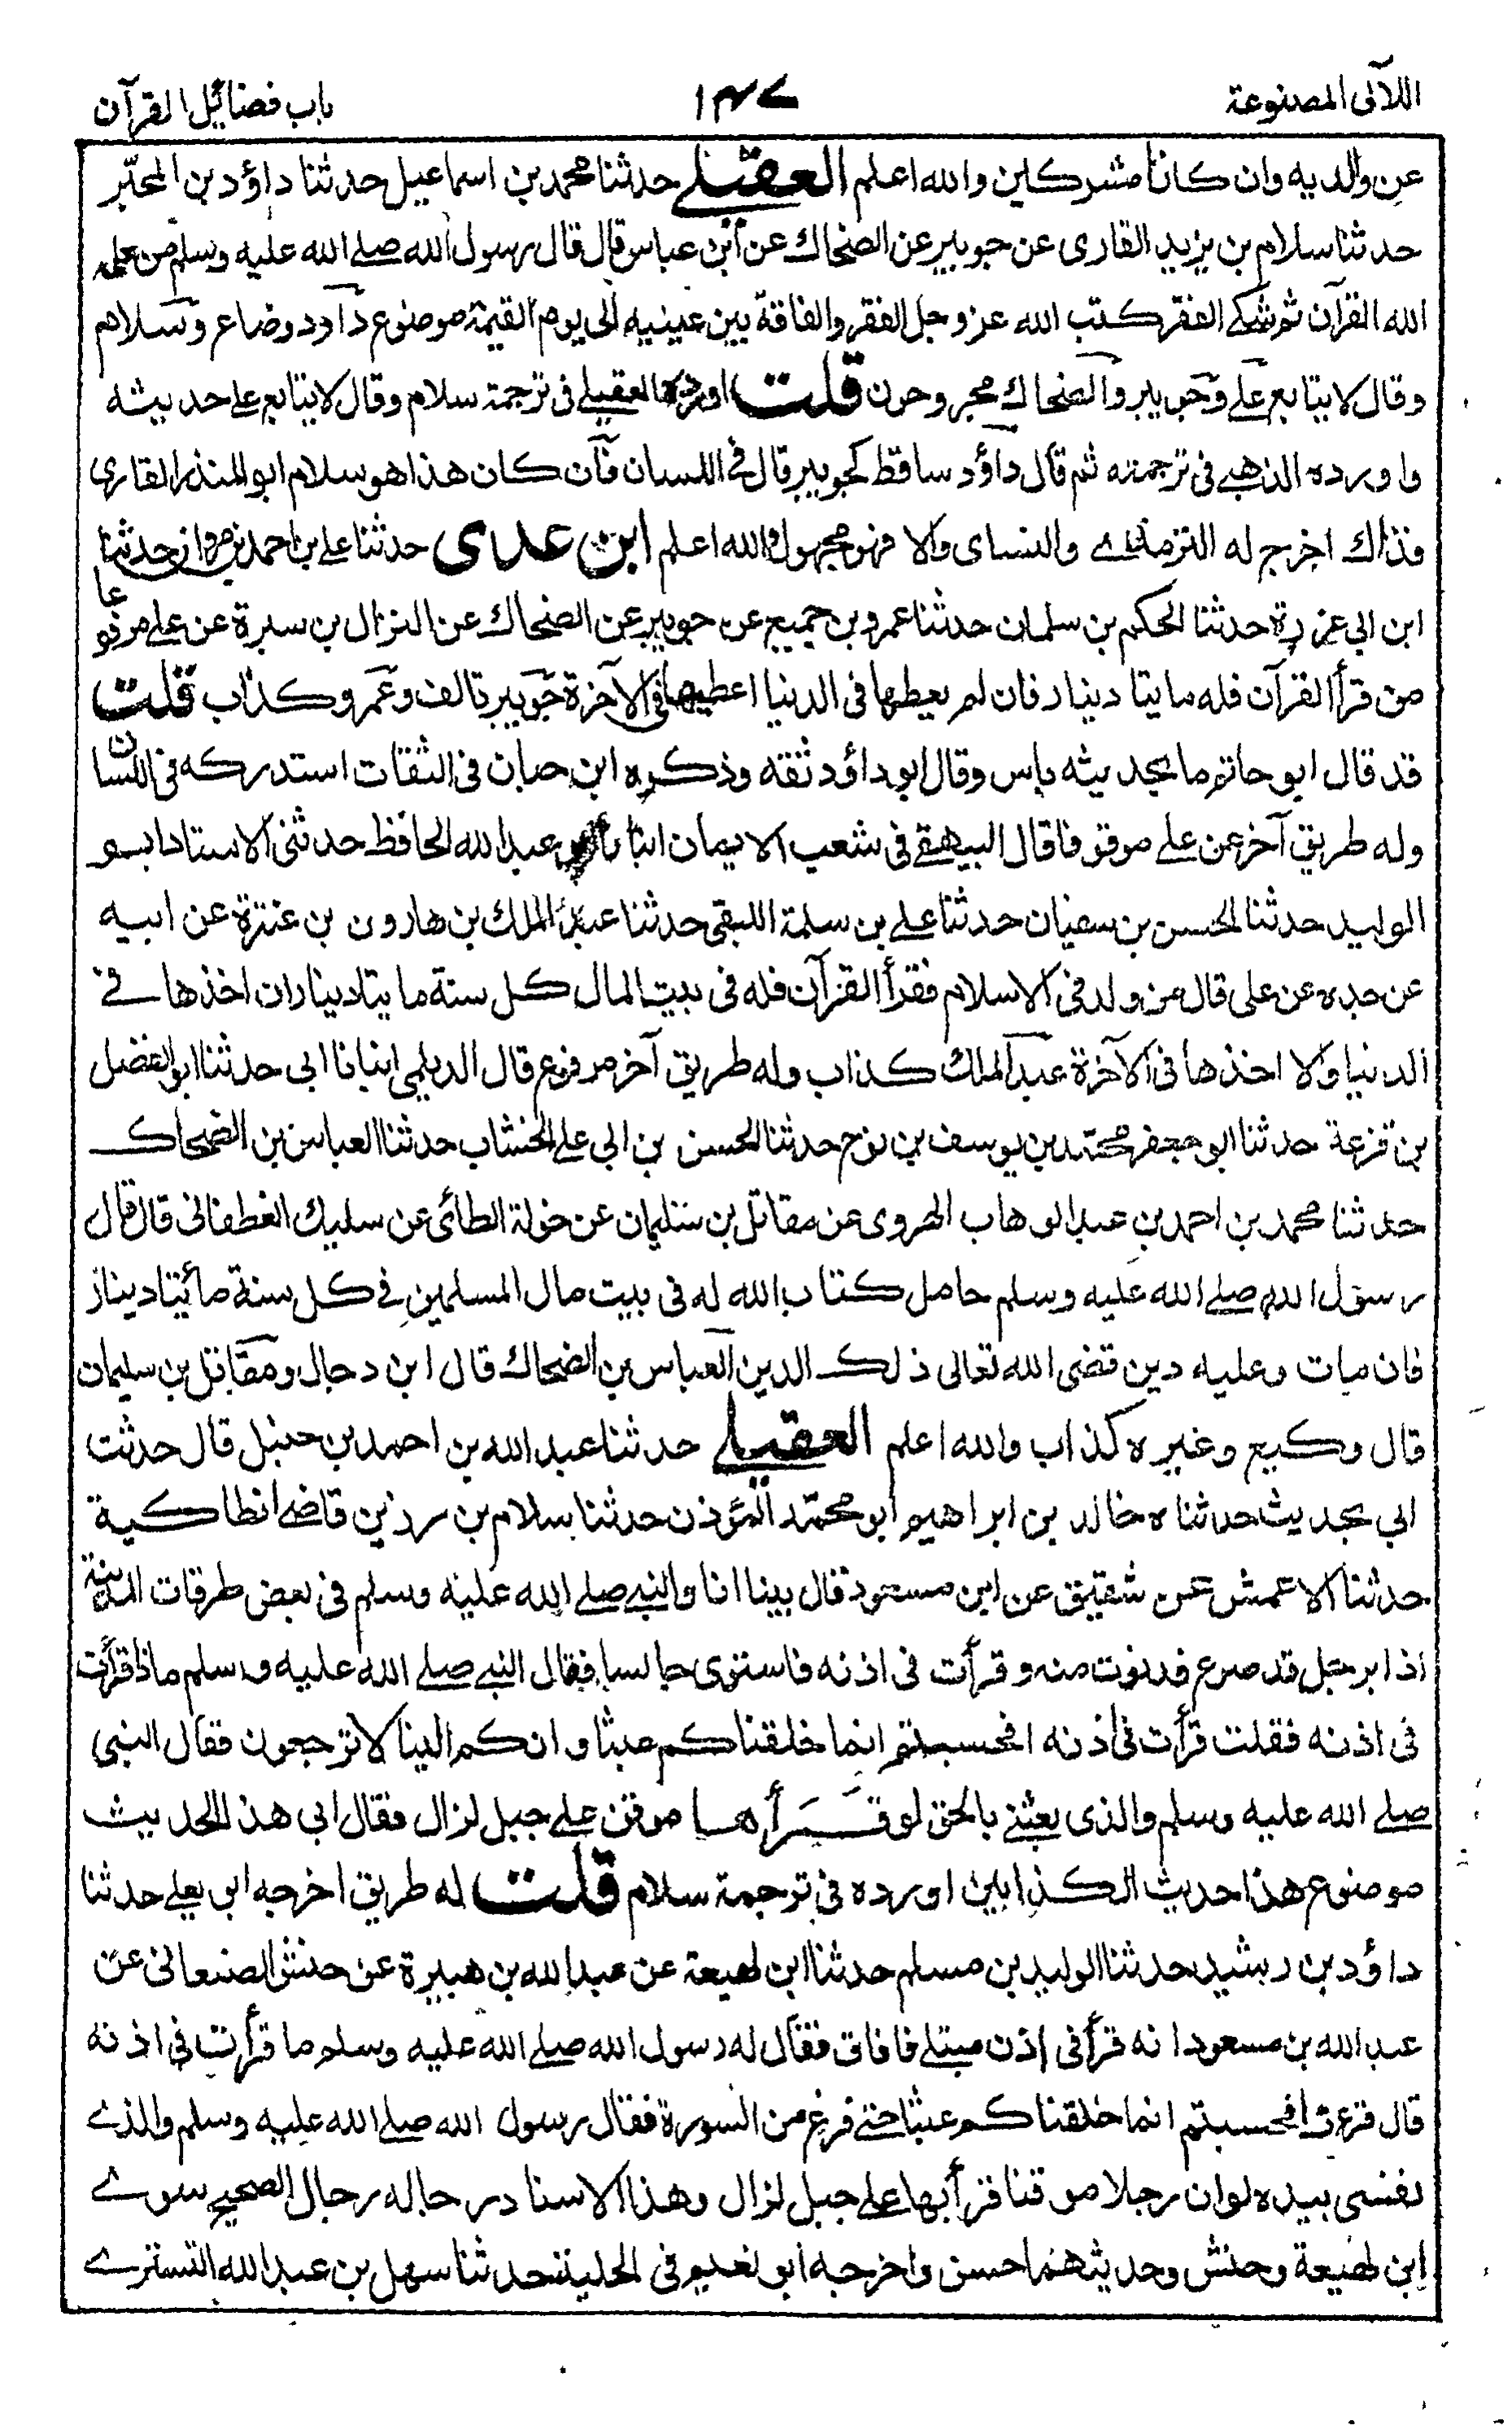 اللآلى المصنوعة
١٤٧
باب فضائل القرآن
عن والديه وان كانا مشركين والله اعلم العقيلے حدثنا محمد بن اسماعيل حدثنا داؤد بن المحبّر
حدثنا سلام بن يزيد القارى عن جويبر عن الضحاك عن ابن عباس قال قال رسول الله صلے الله عليه وسلم من علمه
الله القرآن ثم شكے الفقر كتب الله عز وجل الفقر والفاقة بين عينيه الى يوم القيمة موضوع داود وضاع وسلام
وقال لا يتابع علے وجويبر والضحاك مجروحون قلت اورده العقيلے فى ترجمة سلام وقال لا يتابع علے حديثه
واورده الذهبے فى ترجمته ثم قال داؤد ساقط كجويبر قال فے اللسان فان كان هذا هو سلام ابو المنذر القارى
فذاك اخرج له الترمذے والنساى والا فهو مجهول والله اعلم ابن عدى حدثنا على بن احمد بن مروان حدثنا
ابن ابي عزرة حدثنا الحكم بن سلمان حدثنا عمرو بن جميع عن جويبر عن الضحاك عن النزال بن سبرة عن علے مرفوعا
من قرأ القرآن فله مايتا دينار فان لم يعطها فى الدنيا اعطيها فى الآخرة جويبر تالف وعمرو كذاب قلت
قد قال ابو حاتم ما بحديثه باس وقال ابو داؤد ثقه وذكره ابن حبان فى الثقات استدركه فى اللسان
وله طريق آخر عن علے موقوفا قال البيهقے فى شعب الايمان انبانا عبد الله الحافظ حدثنى الاستاد ابو
الوليد حدثنا الحسن بن سفيان حدثنا علے بن سلمة اللبقى حدثنا عبد الملك بن هارون بن عنترة عن ابيه
عن جده عن على قال من ولد فى الاسلام فقرأ القرآن فله فى بيت المال كل سنة مايتا دينار ان اخذها فے
الدنيا والا اخذها فى الآخرة عبد الملك كذاب وله طريق آخر مرفوع قال الديلمي انبانا ابي حدثنا ابو الفضل
بن قزعة حدثنا ابو جعفر محمد بن يوسف بن نوح حدثنا الحسن بن ابي علے الخشاب حدثنا العباس بن الضحاك
حدثنا محمد بن احمد بن عبد الوهاب الهروى عن مقاتل بن سليمان عن خولة الطائى عن سليك الغطفانى قال قال
رسول الله صلے الله عليه وسلم حامل كتاب الله له فى بيت مال المسلمين فے كل سنة مائيتا دينار
فان مات وعليه دين قضى الله تعالى ذلك الدين العباس بن الضحاك قال ابن دجال ومقاتل بن سليمان
قال وكيع وغيره كذاب والله اعلم العقيلے حدثنا عبد الله بن احمد بن حنبل قال حدثت
ابي بحديث حدثناه خالد بن ابراهيم ابو محمد المؤذن حدثنا سلام بن رزين قاضے انطاكية
حدثنا الاعمش عن شقيق عن ابن مسعود قال بينا انا والنبے صلے الله عليه وسلم فى بعض طرقات المدينة
اذا برجل قد صرع فدنوت منه وقرأت فى اذنه فاستوى جالسا فقال النبے صلے الله عليه وسلم ماذا قرأت
فى اذنه فقلت قرأت فى اذنه افحسبتم انما خلقناكم عبثا وانكم الينا لا ترجعون فقال النبى
صلے الله عليه وسلم والذى بعثنے بالحق لو قرأها موقن علے جبل لزال فقال ابى هذا الحديث
موضوع هذا حديث الكذابين اورده فى ترجمة سلام قلت له طريق اخرجه ابو يعلے حدثنا
داؤد بن رشيد حدثنا الوليد بن مسلم حدثنا ابن لهيعة عن عبد الله بن هبيرة عن حنش الصنعانى عن
عبد الله بن مسعود انه قرأ فى اذن مبتلے فافاق فقال له رسول الله صلے الله عليه وسلم ما قرأت فى اذنه
قال قرءت افحسبتم انما خلقناكم عبثا حتے فرغ من السورة فقال رسول الله صلے الله عليه وسلم والذے
نفسى بيده لو ان رجلا موقنا قرأ بها علے جبل لزال وهذا الاسناد رجاله رجال الصحيح سوے
ابن لهيعة وحنش وحديثهما حسن واخرجه ابو نعيم فى الحلية حدثنا سهل بن عبد الله التسترے